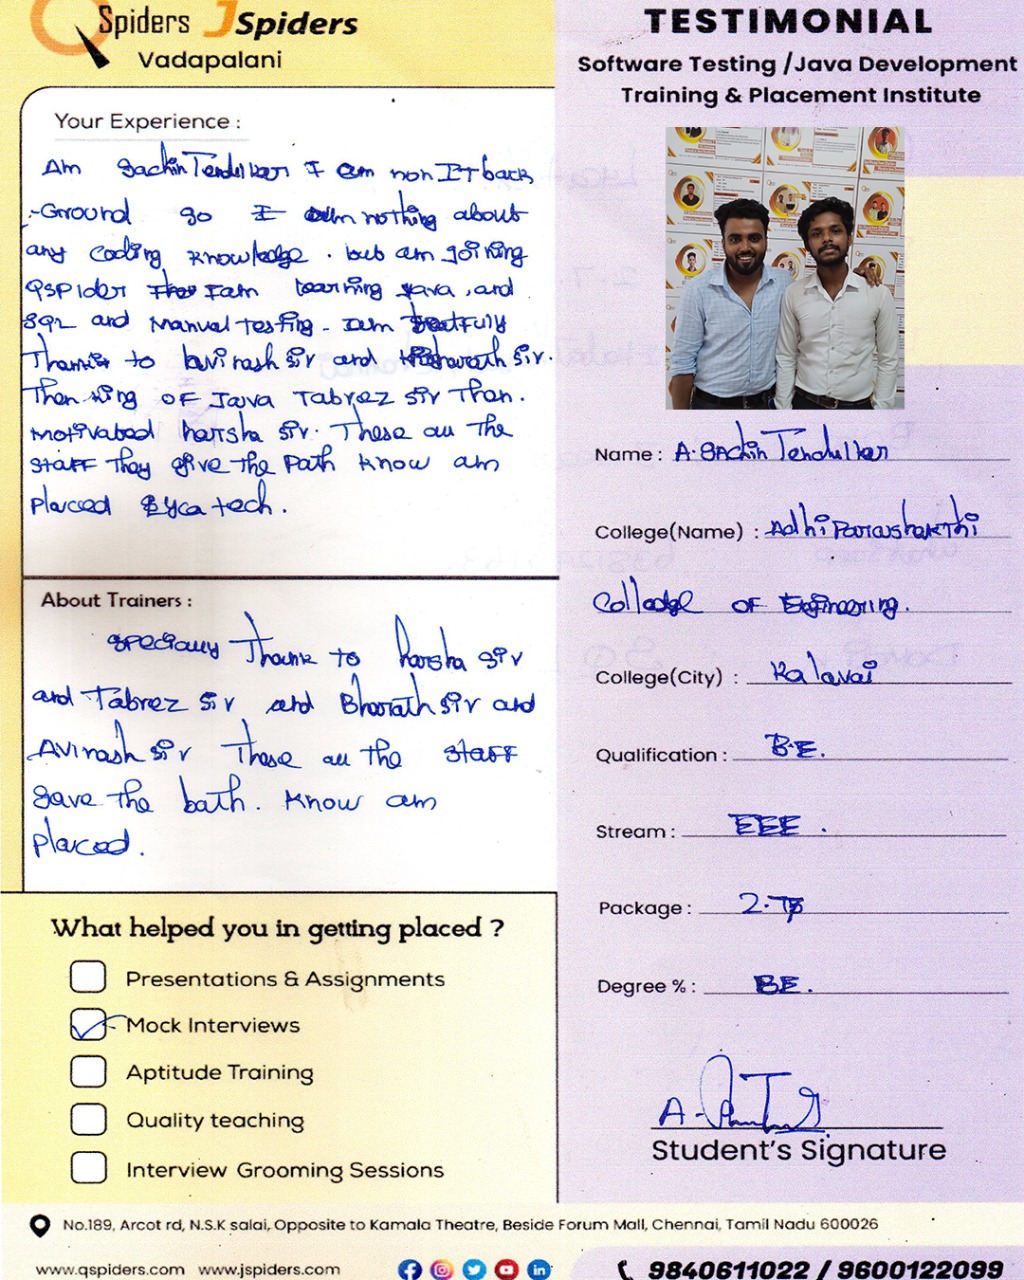 QSpiders JSpiders
Vadapalani
Your Experience :
Am Sachin Tendulkar I am non IT back
-Ground so I am nothing about
any coding knowledge . but am joining
QSPider I am learning Java , and
SQL and Manual Testing - Iam
Thanks to avinash sir and Bharath sir.
Then king OF Java Tabrez sir Then.
Motivated harsha sir. These all the
staff They give the Path know am
Placed Lyca tech.
About Trainers :
specially Thank to harsha sir
and Tabrez sir and Bharath sir and
Avinash sir These all the staff
gave the bath. know am
Placed.
What helped you in getting placed ?
Presentations & Assignments
Mock Interviews
Aptitude Training
Quality teaching
Interview Grooming Sessions
TESTIMONIAL
Software Testing /Java Development
Training & Placement Institute
Name : A. Sachin Tendulkar
College(Name) : Adhi Parashakthi
College OF Engineering.
College(City) : Kalavai
Qualification : B.E.
Stream : EEE .
Package :
Degree % : BE.
Student's Signature
No.189, Arcot rd, N.S.K salai, Opposite to Kamala Theatre, Beside Forum Mall, Chennai, Tamil Nadu 600026
www.qspiders.com www.jspiders.com
9840611022 / 9600122099